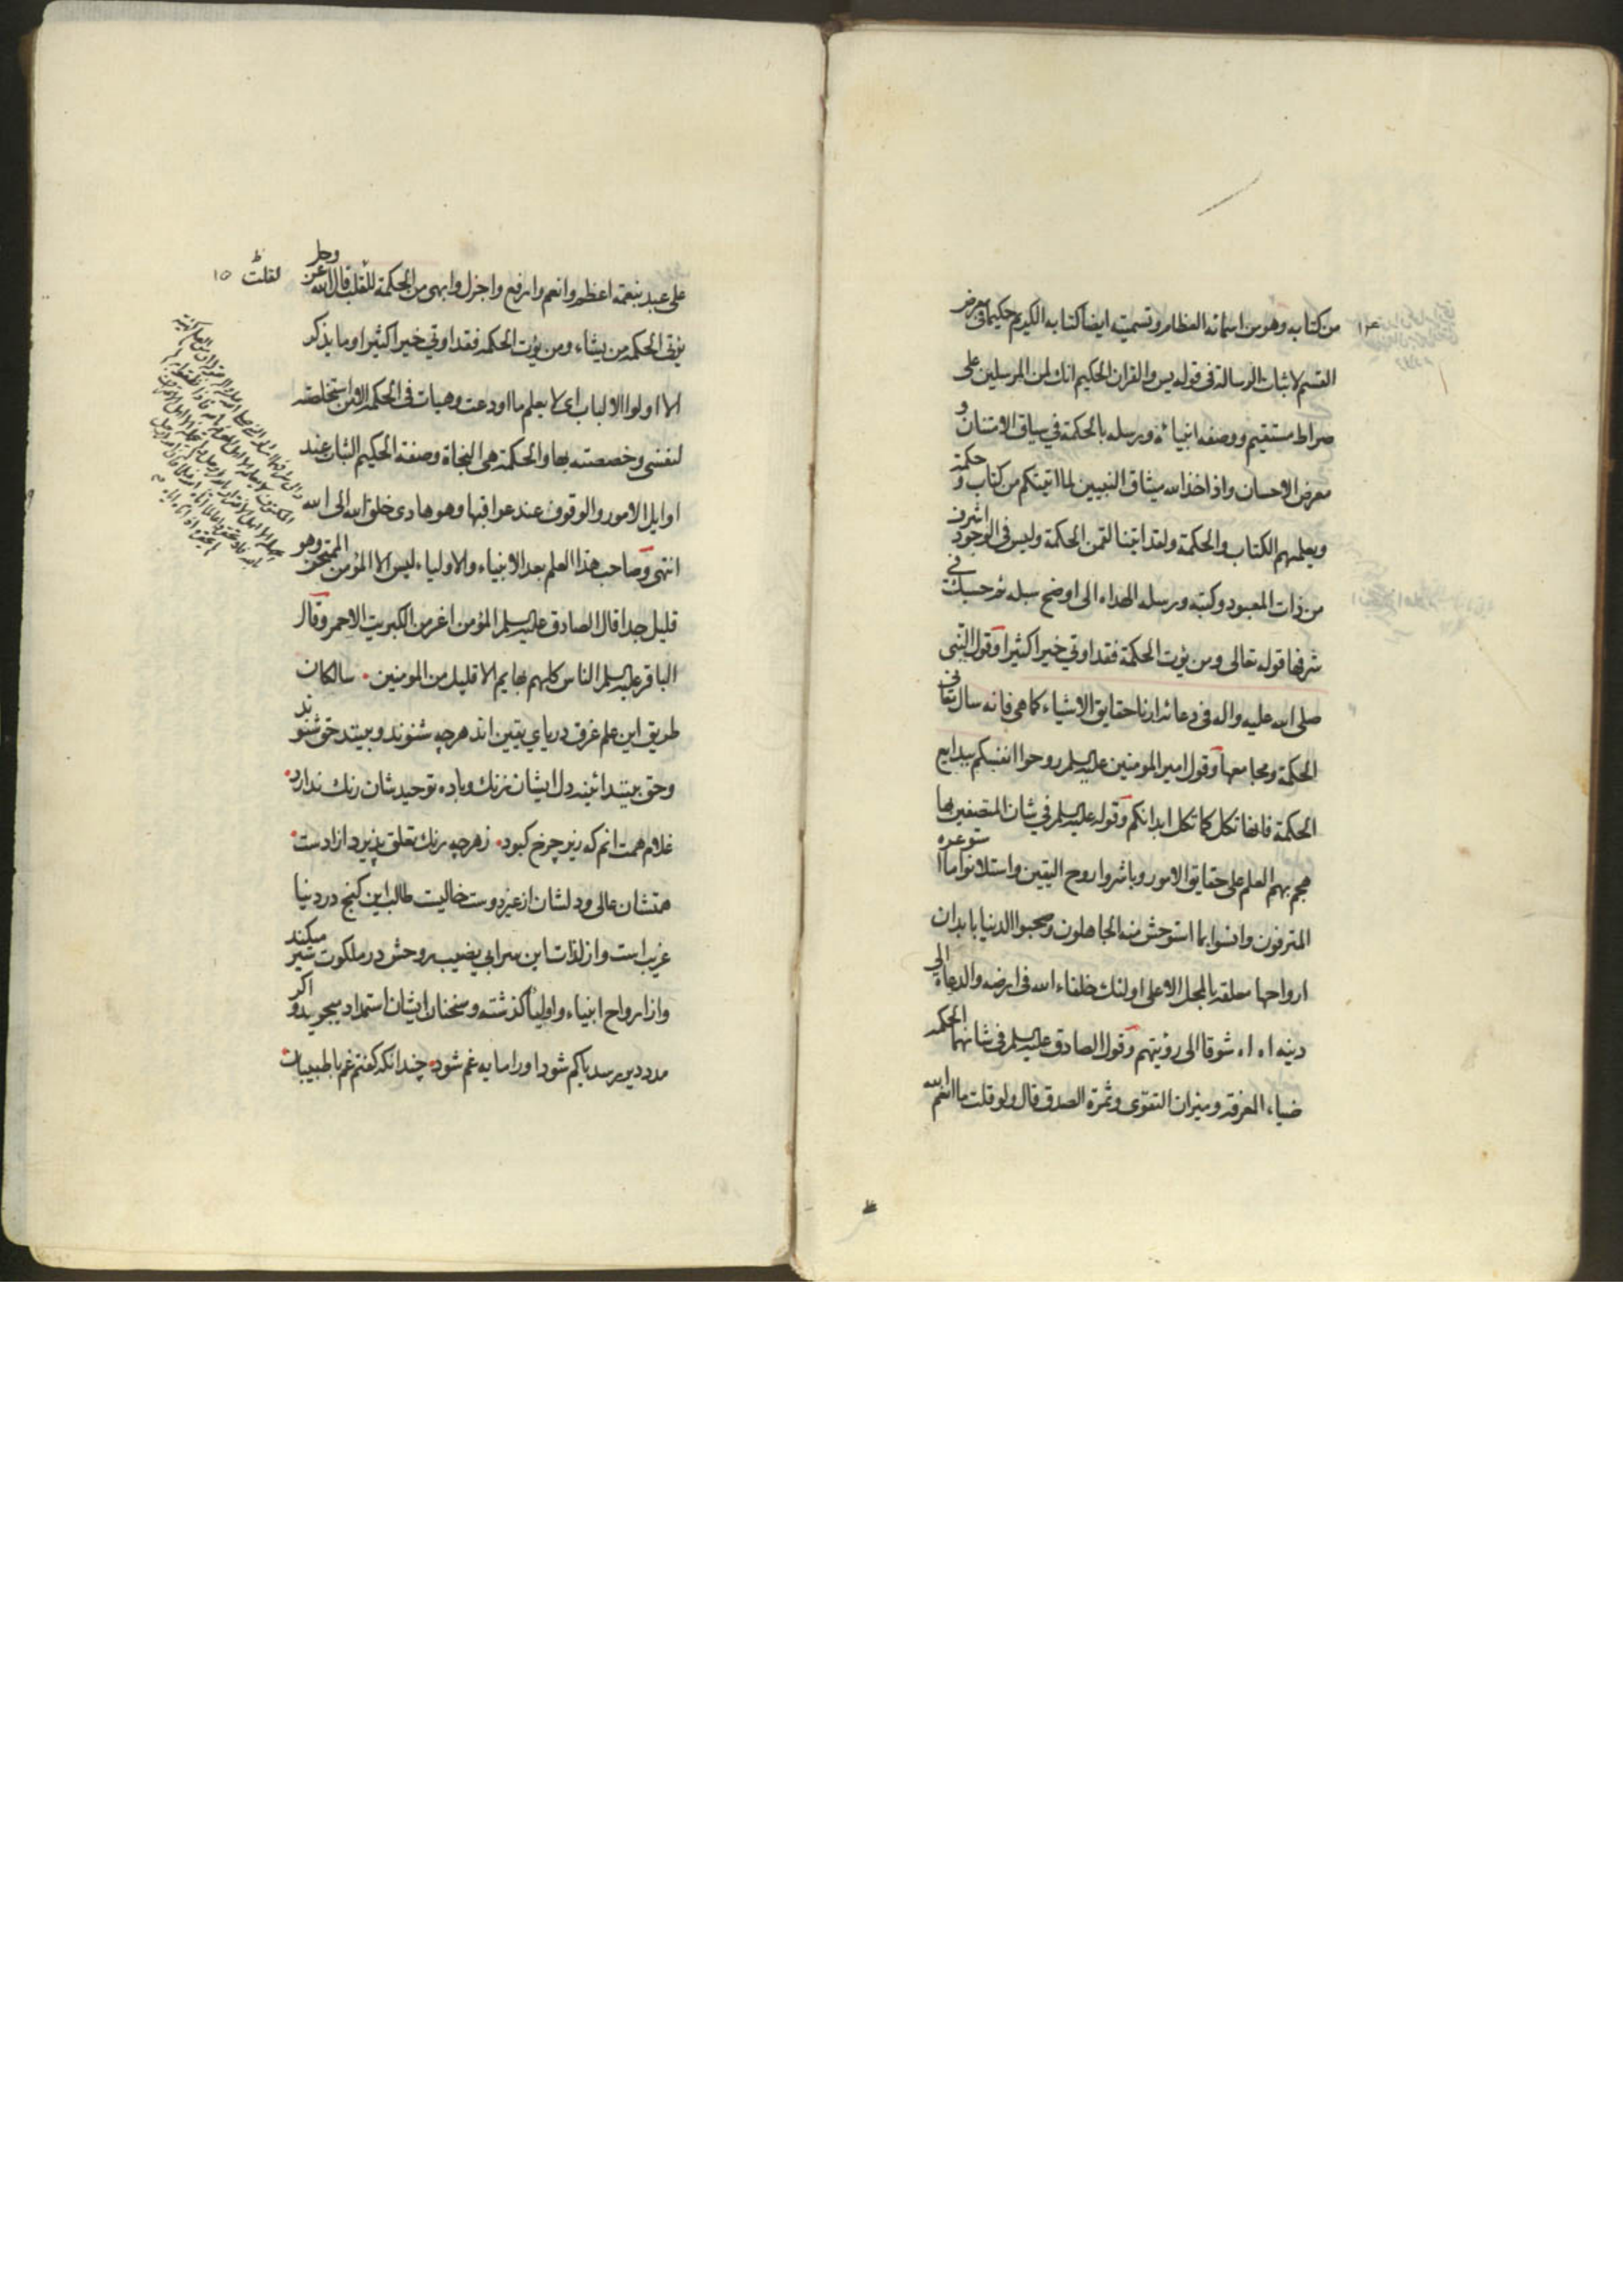 من كتابه وهو من اسمائه العظام وتسميته ايضا كتابه الكريم حكيما فى معرض
القسم لاثبات الرسالة فى قوله يس والقران الحكيم انك لمن المرسلين على
صراط مستقيم ووصفه انبيائه ورسله بالحكمة في سياق الامتنان و
معرض الاحسان واذ اخذ الله ميثاق النبيين لما اتيتكم من كتاب و حكمة
ويعلمهم الكتاب والحكمة ولقد اتينا لقمن الحكمة وليس فى الوجود اشرف
من ذات المعبود وكتبه ورسله الهداه الى اوضح سبله ثم حسبك في
شرفها قوله تعالى ومن يؤت الحكمة فقد اوتي خيرا كثيرا وقول النبي
صلى الله عليه واله فى دعائه ارنا حقايق الاشياء كما هي فانه سال تعالى
الحكمة ومجامعها وقول امير المومنين عليه السلم روحوا انفسكم ببدايع
الحكمة فانها تكل كما تكل ابدانكم وقوله عليه السلم في شان المتصفين بها
هجم بهم العلم على حقايق الامور وباشروا روح اليقين واستلانوا ما استوعره
المترفون وانسوا بما استوحش منه الجاهلون وصحبوا الدنيا بابدان
ارواحها معلقه بالمحل الاعلى اولئك خلفاء الله فى ارضه والدعاة الى
دينه اه اه شوقا الى رؤيتهم وقول الصادق عليه السلم فى شانها الحكمه
ضياء المعرفة وميزان التقوى وثمرة الصدق قال ولو قلت ما انعم الله
على عبد بنعمة اعظم وانعم وارفع واجزل وابهى من الحكمة للقلب قال الله عز وجل
لقلت ظ
يؤتى الحكمه من يشاء ومن يؤت الحكمه فقد اوتي خيرا كثيرا وما يذكر
الا اولوا الالباب اى لا يعلم ما اودعت وهيات فى الحكمه الا من استخلصته
لنفسى وخصصته بها والحكمة هى النجاة وصفة الحكيم الثبات عند
اوايل الامور والوقوف عند عواقبها وهو هادى خلق الله الى الله
انتهى وصاحب هذا العلم بعد الانبياء والاولياء ليس الا المؤمن الممتحن وهو
قليل جدا قال الصادق عليه السلم المؤمن اعز من الكبريت الاحمر وقال
الباقر عليه السلم الناس كلهم بهايم الا قليل من المومنين . سالكان
طريق اين علم غرق درياي يقين اند هرچه شنوند و بينند حق شنوند
وحق بينند ائينه دل ايشان زنك و باده توحيدشان رنك ندارد .
غلام همت انم كه زير چرخ كبود . زهرچه رنك تعلق پذيرد ازادست .
همتشان عالى ودلشان از غير دوست خاليست طالب اين كنج در دنيا
غريب است و از لذات اين سراى بى نصيب روحش در ملكوت سير ميكند
و از ارواح انبياء و اولياء كذشته و سخنان ايشان استمداد ميجويد و اكر
مدد دير رسد يا كم شود او را مايه غم شود . چندانكه كفتم غم با طبيبان